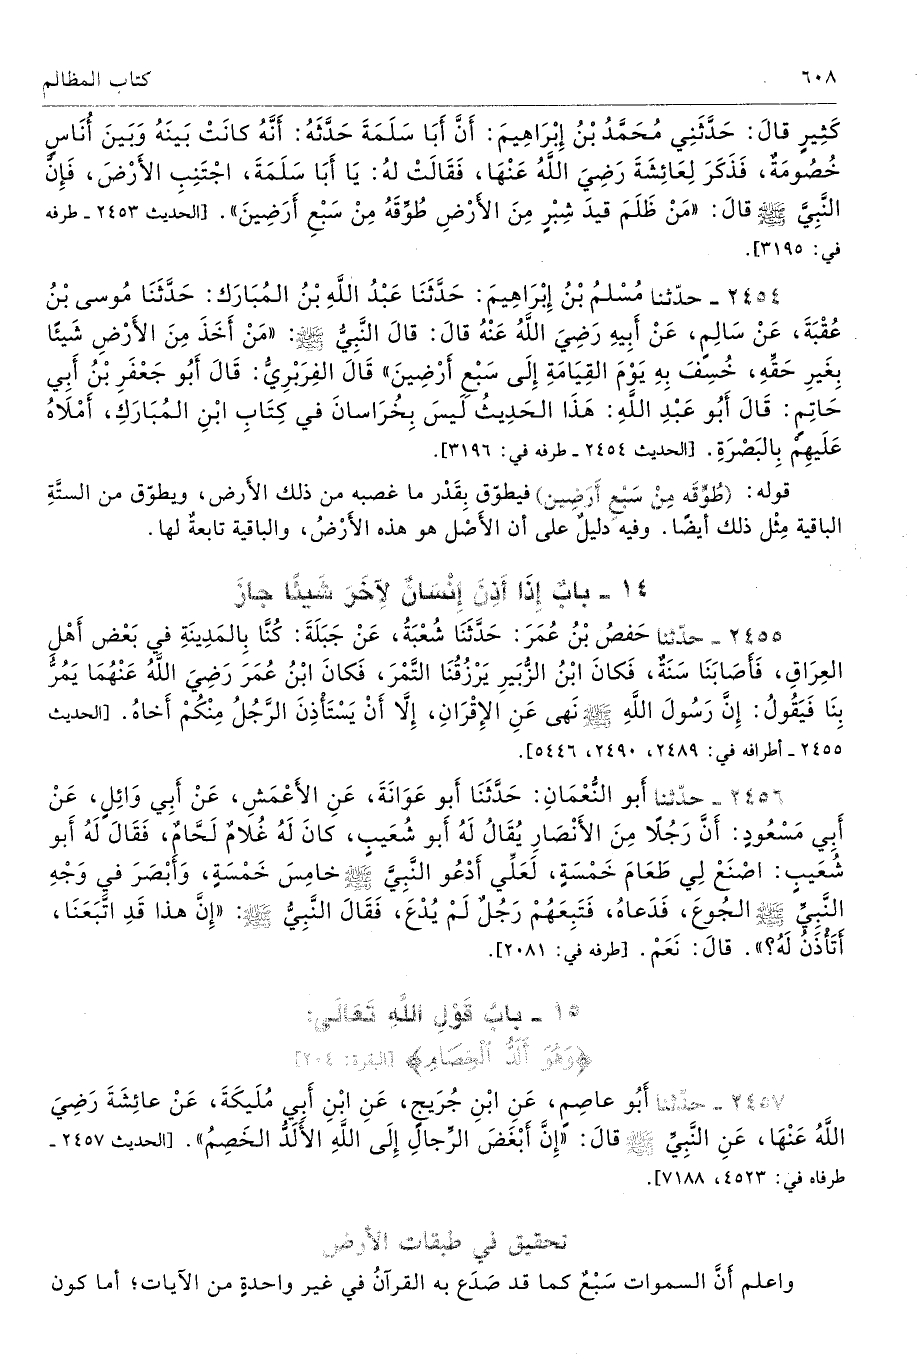 ٦٠٨ كتاب المظالم
كَثِيرٍ قالَ: حَدَّثَنِي مُحَمَّدُ بْنُ إِبْرَاهِيمَ: أَنَّ أَبَا سَلَمَةَ حَدَّثَهُ: أَنَّهُ كانَتْ بَينَهُ وَبَينَ أُنَاسٍ
خُصُومَةٌ، فَذَكَرَ لِعَائِشَةَ رَضِيَ اللَّهُ عَنْهَا، فَقَالَتْ لهُ: يَا أَبَا سَلَمَةَ، اجْتَنِبِ الأَرْضَ، فَإِنَّ
النَّبِيَّ ﷺ قالَ: «مَنْ ظَلَمَ قِيدَ شِبْرٍ مِنَ الأَرْضِ طُوِّقَهُ مِنْ سَبْعِ أَرَضِينَ». [الحديث ٢٤٥٣ ـ طرفه
في: ٣١٩٥].
٢٤٥٤ ـ حدّثنا مُسْلِمُ بْنُ إِبْرَاهِيمَ: حَدَّثَنَا عَبْدُ اللَّهِ بْنُ المُبَارَكِ: حَدَّثَنَا مُوسى بْنُ
عُقْبَةَ، عَنْ سَالِمٍ، عَنْ أَبِيهِ رَضِيَ اللَّهُ عَنْهُ قالَ: قالَ النَّبِيُّ ﷺ: «مَنْ أَخَذَ مِنَ الأَرْضِ شَيئًا
بِغَيرِ حَقِّهِ، خُسِفَ بِهِ يَوْمَ القِيَامَةِ إِلَى سَبْعِ أَرْضِينَ» قَالَ الفِرَبْرِيُّ: قَالَ أَبُو جَعْفَرِ بْنُ أَبِي
حَاتِمٍ: قَالَ أَبُو عَبْدِ اللَّهِ: هَذَا الحَدِيثُ لَيسَ بِخُرَاسانَ فِي كِتَابِ ابْنِ المُبَارَكِ، أَمْلَاهُ
عَلَيهِمْ بِالبَصْرَةِ. [الحديث ٢٤٥٤ ـ طرفه في: ٣١٩٦].
قوله: (طُوِّقَه مِنْ سَبْعِ أَرَضِين) فيطوّق بِقَدْر ما غصبه من ذلك الأرض، ويطوّق من الستَّةِ
الباقية مِثْل ذلك أيضًا. وفيه دليلٌ على أن الأَصْل هو هذه الأَرْضُ، والباقية تابعةٌ لها.
١٤ ـ بابٌ إِذَا أَذِنَ إِنْسَانٌ لِآخَرَ شَيئًا جازَ
٢٤٥٥ ـ حدّثنا حَفصُ بْنُ عُمَرَ: حَدَّثَنَا شُعْبَةُ، عَنْ جَبَلَةَ: كُنَّا بِالمَدِينَةِ فِي بَعْضِ أَهْلِ
العِرَاقِ، فَأَصَابَنَا سَنَةٌ، فَكانَ ابْنُ الزُّبَيرِ يَرْزُقُنَا التَّمْرَ، فَكانَ ابْنُ عُمَرَ رَضِيَ اللَّهُ عَنْهُمَا يَمُرُّ
بِنَا فَيَقُولُ: إِنَّ رَسُولَ اللَّهِ ﷺ نَهى عَنِ الإِقْرَانِ، إِلَّا أَنْ يَسْتَأْذِنَ الرَّجُلُ مِنْكُمْ أَخاهُ. [الحديث
٢٤٥٥ ـ أطرافه في: ٢٤٨٩، ٢٤٩٠، ٥٤٤٦].
٢٤٥٦ ـ حدّثنا أَبو النُّعْمَانِ: حَدَّثَنَا أَبو عَوَانَةَ، عَنِ الأَعْمَشِ، عَنْ أَبِي وَائِلٍ، عَنْ
أَبِي مَسْعُودٍ: أَنَّ رَجُلًا مِنَ الأَنْصَارِ يُقَالُ لَهُ أَبو شُعَيبٍ، كانَ لَهُ غُلَامٌ لَحَّامٌ، فَقَالَ لَهُ أَبو
شُعَيبٍ: اصْنَعْ لِي طَعَامَ خَمْسَةٍ، لَعَلِّي أَدْعُو النَّبِيَّ ﷺ خامِسَ خَمْسَةٍ، وَأَبْصَرَ فِي وَجْهِ
النَّبِيِّ ﷺ الجُوعَ، فَدَعاهُ، فَتَبِعَهُمْ رَجُلٌ لَمْ يُدْعَ، فَقَالَ النَّبِيُّ ﷺ: «إِنَّ هذا قَدِ اتَّبَعَنَا،
أَتَأْذَنُ لَهُ؟». قالَ: نَعَمْ. [طرفه في: ٢٠٨١].
١٥ ـ بابُ قَوْلِ اللَّهِ تَعَالَى:
﴿وَهُوَ أَلَدُّ ٱلْخِصَامِ﴾ [البقرة: ٢٠٤]
٢٤٥٧ ـ حدّثنا أَبُو عاصِمٍ، عَنِ ابْنِ جُرَيجٍ، عَنِ ابْنِ أَبِي مُلَيكَةَ، عَنْ عائِشَةَ رَضِيَ
اللَّهُ عَنْهَا، عَنِ النَّبِيِّ ﷺ قالَ: «إِنَّ أَبْغَضَ الرِّجالِ إِلَى اللَّهِ الأَلَدُّ الخَصِمُ». [الحديث ٢٤٥٧ ـ
طرفاه في: ٤٥٢٣، ٧١٨٨].
تحقيق في طبقات الأرض
واعلم أَنَّ السموات سَبْعٌ كما قد صَدَع به القرآنُ في غير واحدةٍ من الآيات؛ أما كون